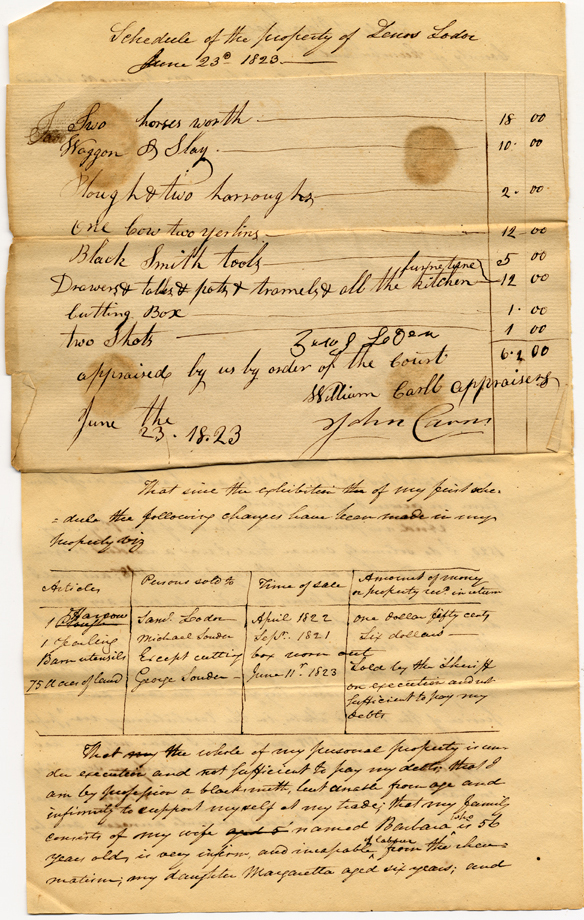 Schedule of the property of Lenos Lodor
June 23d 1823
Two horses worth 18 00
Waggon & Slay 10 00
Plough & two harroughs 2 00
one Cow two yerlins 12 00
Black Smith tools 5 00
Drawers & tabls & pots & tramels & all the kitchen 12 00
Cutting Box 1 00
two Shots 1 00
61 00
appraised by us by order of the Court
William Carll appraisers
June the John Cavin
23. 1823
That since the exhibition the of my first sche-
= dule the following changes have been made in my
property viz
Articles Persons sold to Time of sale Amount of money
or property recd. in return
1 Harrow Saml. Lodor April 1822 one dollar fifty cents
1 Yearling Michael Souder Sept. 1821 Six dollars
Barn utensils Except cutting box worn out
75 Acres of land George Souder June 11th. 1823 Sold by the Sheriff
on execution and not
sufficient to pay my
debts
That my the whole of my personal property is un-
der execution and not sufficient to pay my debts; that I
am by profession a blacksmith, but unable from age and
infirmity to support myself at my trade; that my family
consists of my wife and 5 named Barbara who is 56
years old, is very infirm, and incapable of labour from the rheu-
matism; my daughter Margaretta aged six years; and